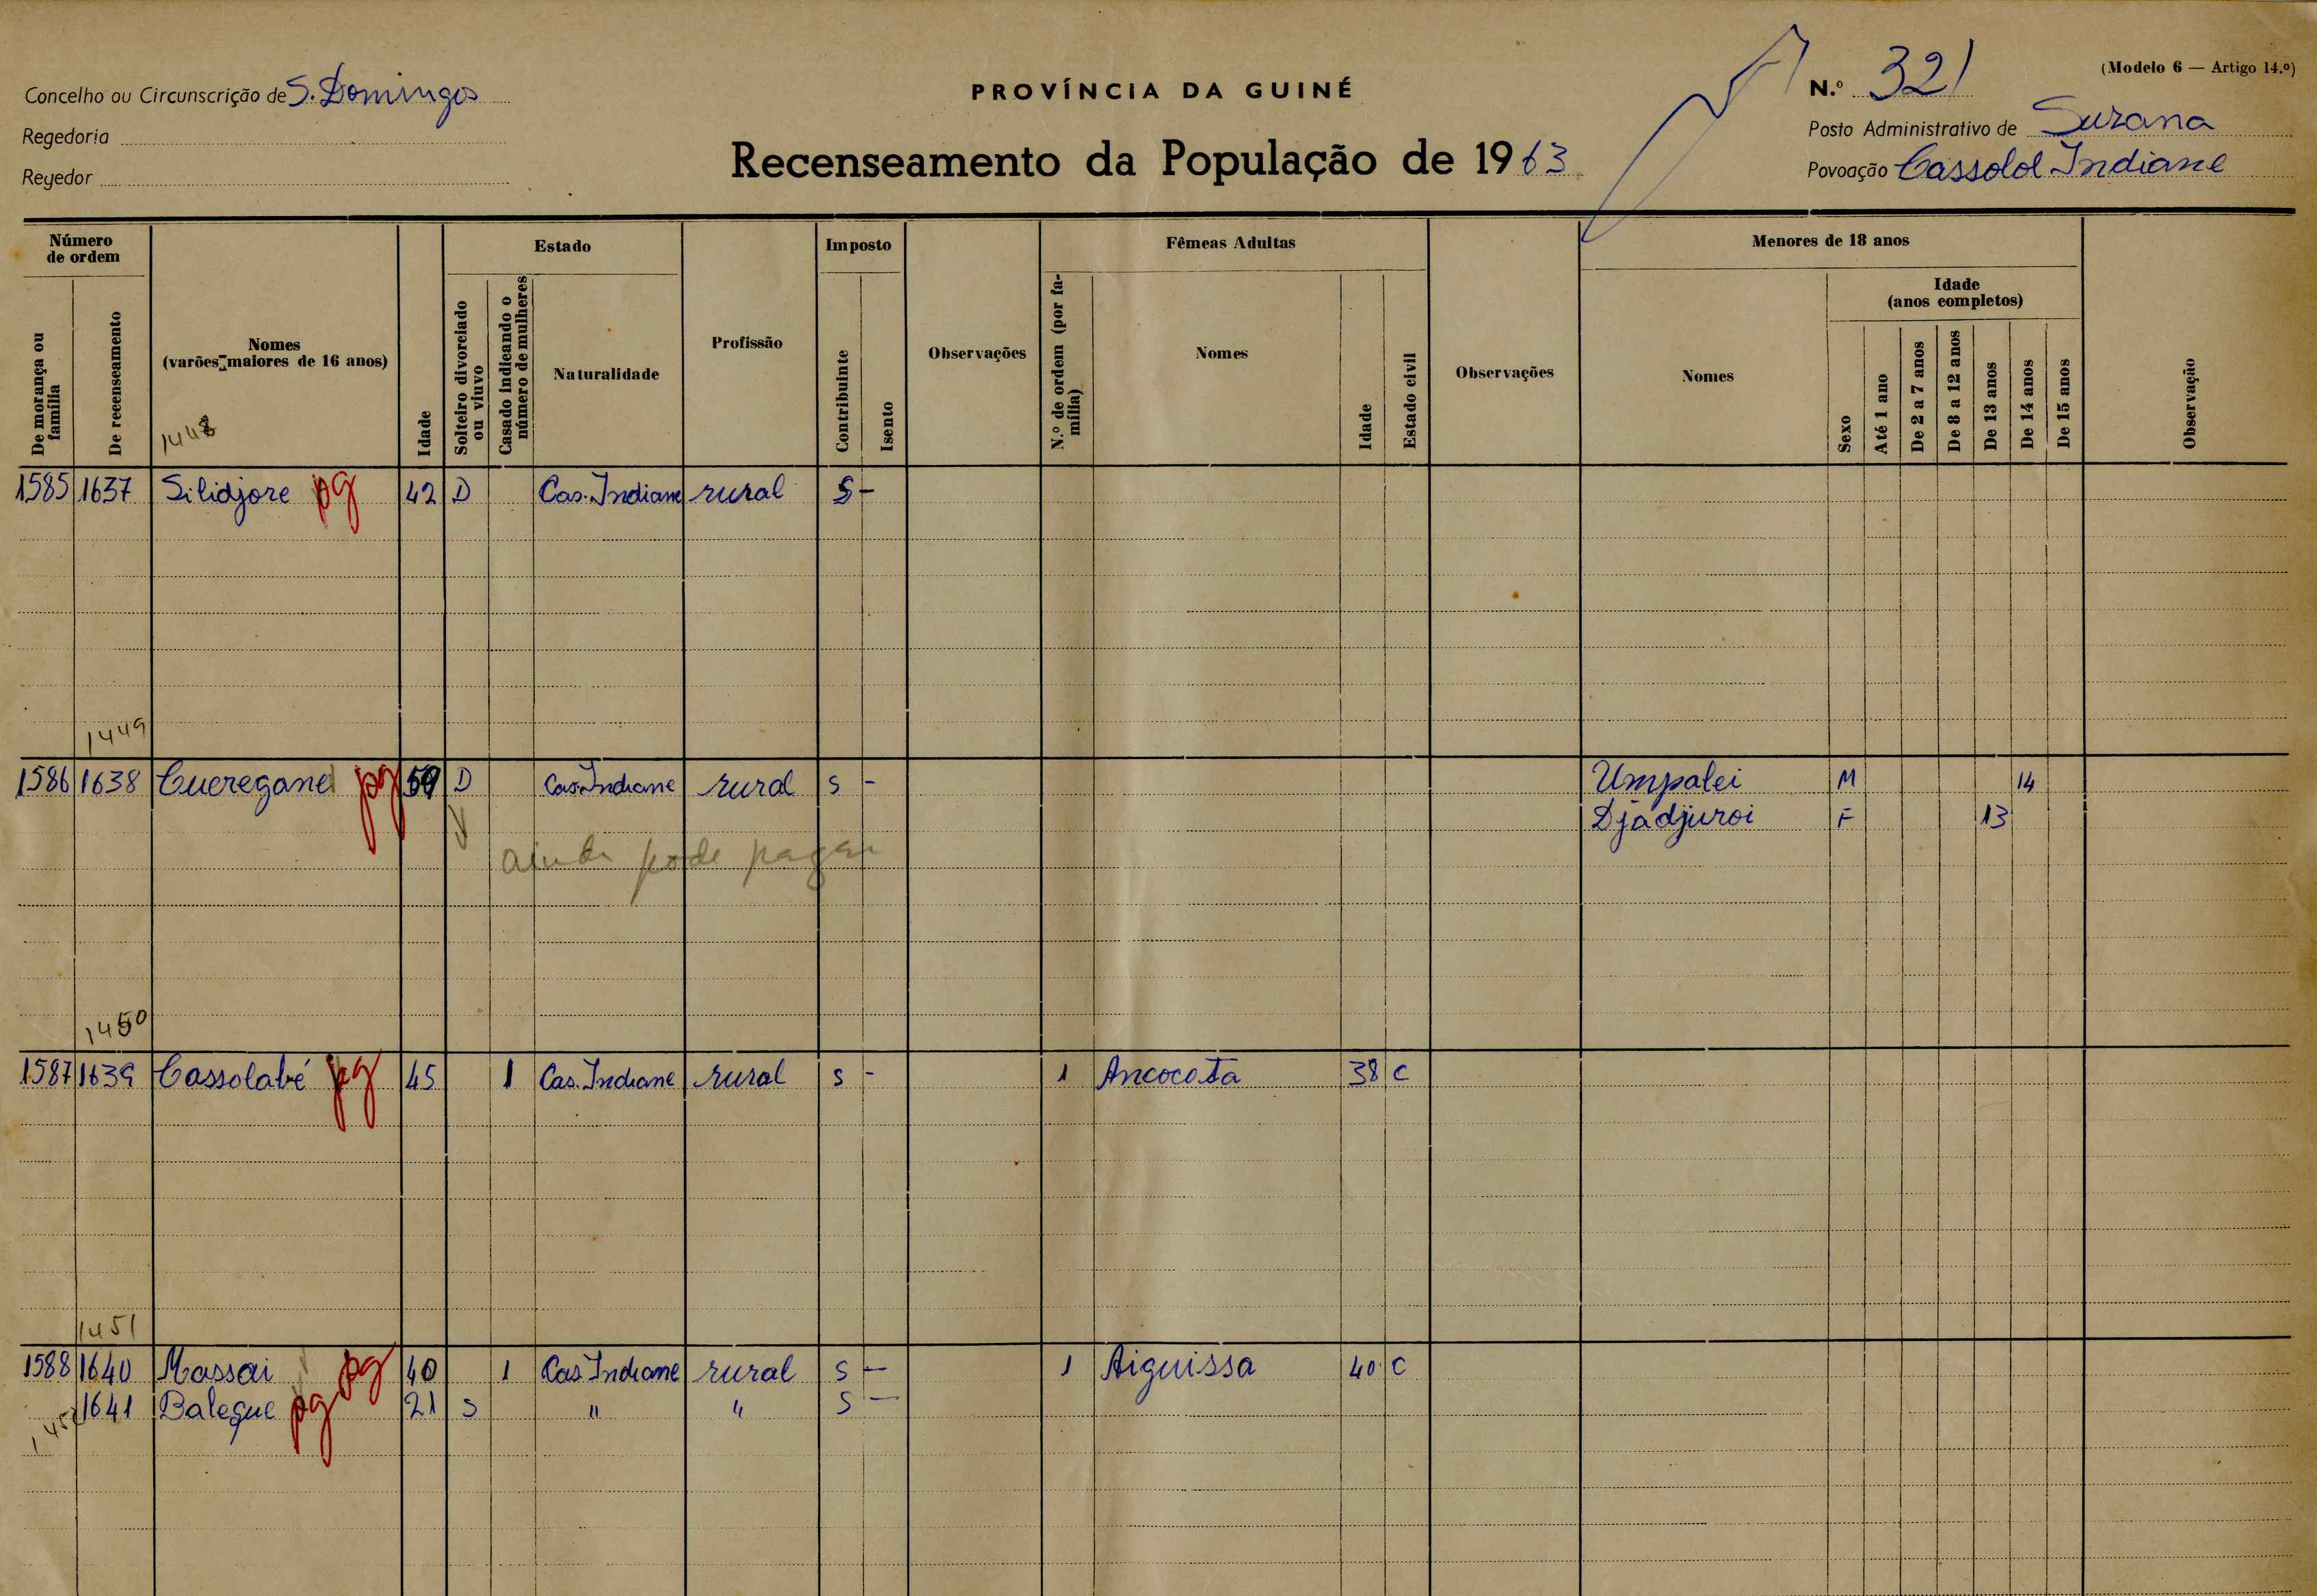 (Modelo 6 — Artigo 14.º)
Concelho ou Circunscrição de S. Domingos
PROVÍNCIA DA GUINÉ
N.º 321
Regedoria
Posto Administrativo de Suzana
Regedor
Recenseamento da População de 1963
Povoação Cassolol Indiane
Número de ordem
Estado
Imposto
Fêmeas Adultas
Menores de 18 anos
De morança ou família
De recenseamento
Nomes
(varões maiores de 16 anos)
Idade
Solteiro divorciado ou viuvo
Casado indicando o número de mulheres
Naturalidade
Profissão
Contribuinte
Isento
Observações
N.º de ordem (por família)
Nomes
Idade
Estado civil
Observações
Nomes
Sexo
Idade
(anos completos)
Até 1 ano
De 2 a 7 anos
De 8 a 12 anos
De 13 anos
De 14 anos
De 15 anos
Observação
1448
1585 1637 Silidjore pg 42 D Cas. Indiane rural S -
1449
1586 1638 Cueregane pg 59 D Cas. Indiane rural s - Umpalei M 14
Djadjuroi F 13
ainda pode pagar
1450
1587 1639 Cassolabé pg 45 1 Cas. Indiane rural s - 1 Ancocota 38 C
1451
1588 1640 Massai pg 40 1 Cas. Indiane rural s - 1 Aiguissa 40 C
1452 1641 Baleque pg 21 S " " S -